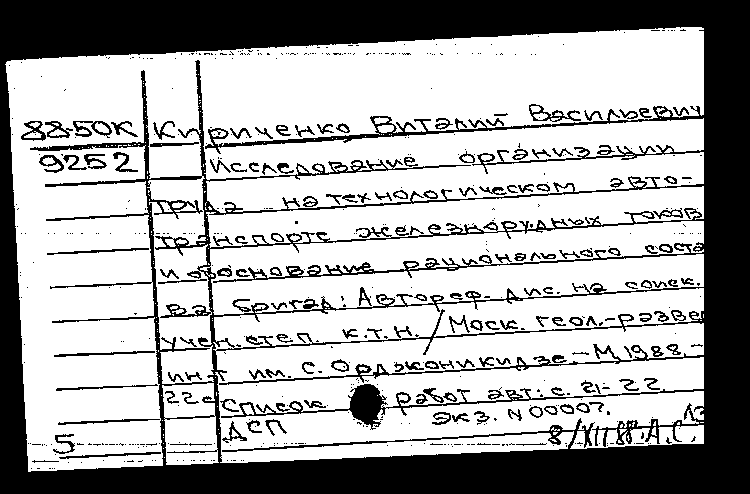 88-50К Кириченко, Виталий Васильевич
9252 Исследование организации
труда на технологическом авто-
транспорте железнорудных токов
и обоснование рационального соста
ва бригад: Автореф. дис. на соиск.
учен. степ. к.т.н. / Моск. геол.-разве
ин-т им. С. Орджоникидзе. - М, 1988. -
22с Список работ авт: с. 21-22.
ДСП экз. N 00007.
5 8/XII 88. А.С.